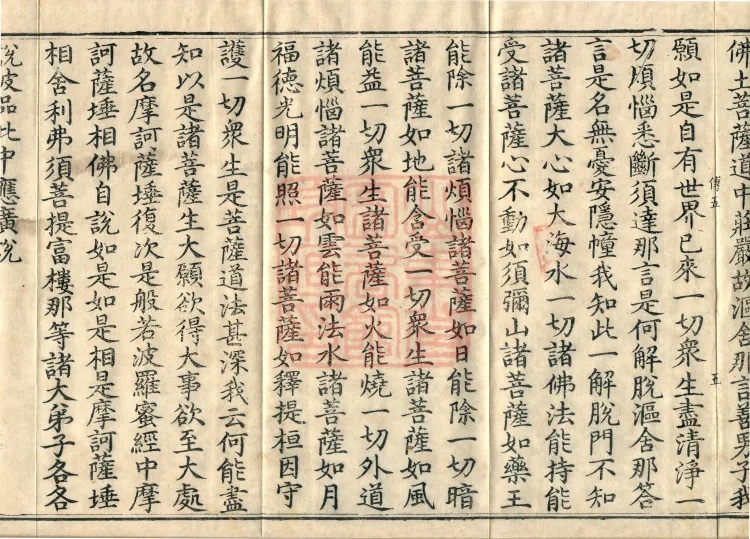 佛土菩薩道中莊嚴故漚舍那言善男子我
傳五　五
願如是自有世界已來一切衆生盡清淨一
切煩惱悉斷須達那言是何解脫漚舍那荅
言是名無憂安隱幢我知此一解脫門不知
諸菩薩大心如大海水一切諸佛法能持能
受諸菩薩心不動如須彌山諸菩薩如藥王
能除一切諸煩惱諸菩薩如日能除一切暗
諸菩薩如地能含受一切衆生諸菩薩如風
能益一切衆生諸菩薩如火能燒一切外道
諸煩惱諸菩薩如雲能雨法水諸菩薩如月
福德光明能照一切諸菩薩如釋提桓因守
護一切衆生是菩薩道法甚深我云何能盡
知以是諸菩薩生大願欲得大事欲至大處
故名摩訶薩埵復次是般若波羅蜜經中摩
訶薩埵相佛自說如是如是相是摩訶薩埵
相舍利弗須菩提富樓那等諸大弟子各各
說彼品此中應廣說